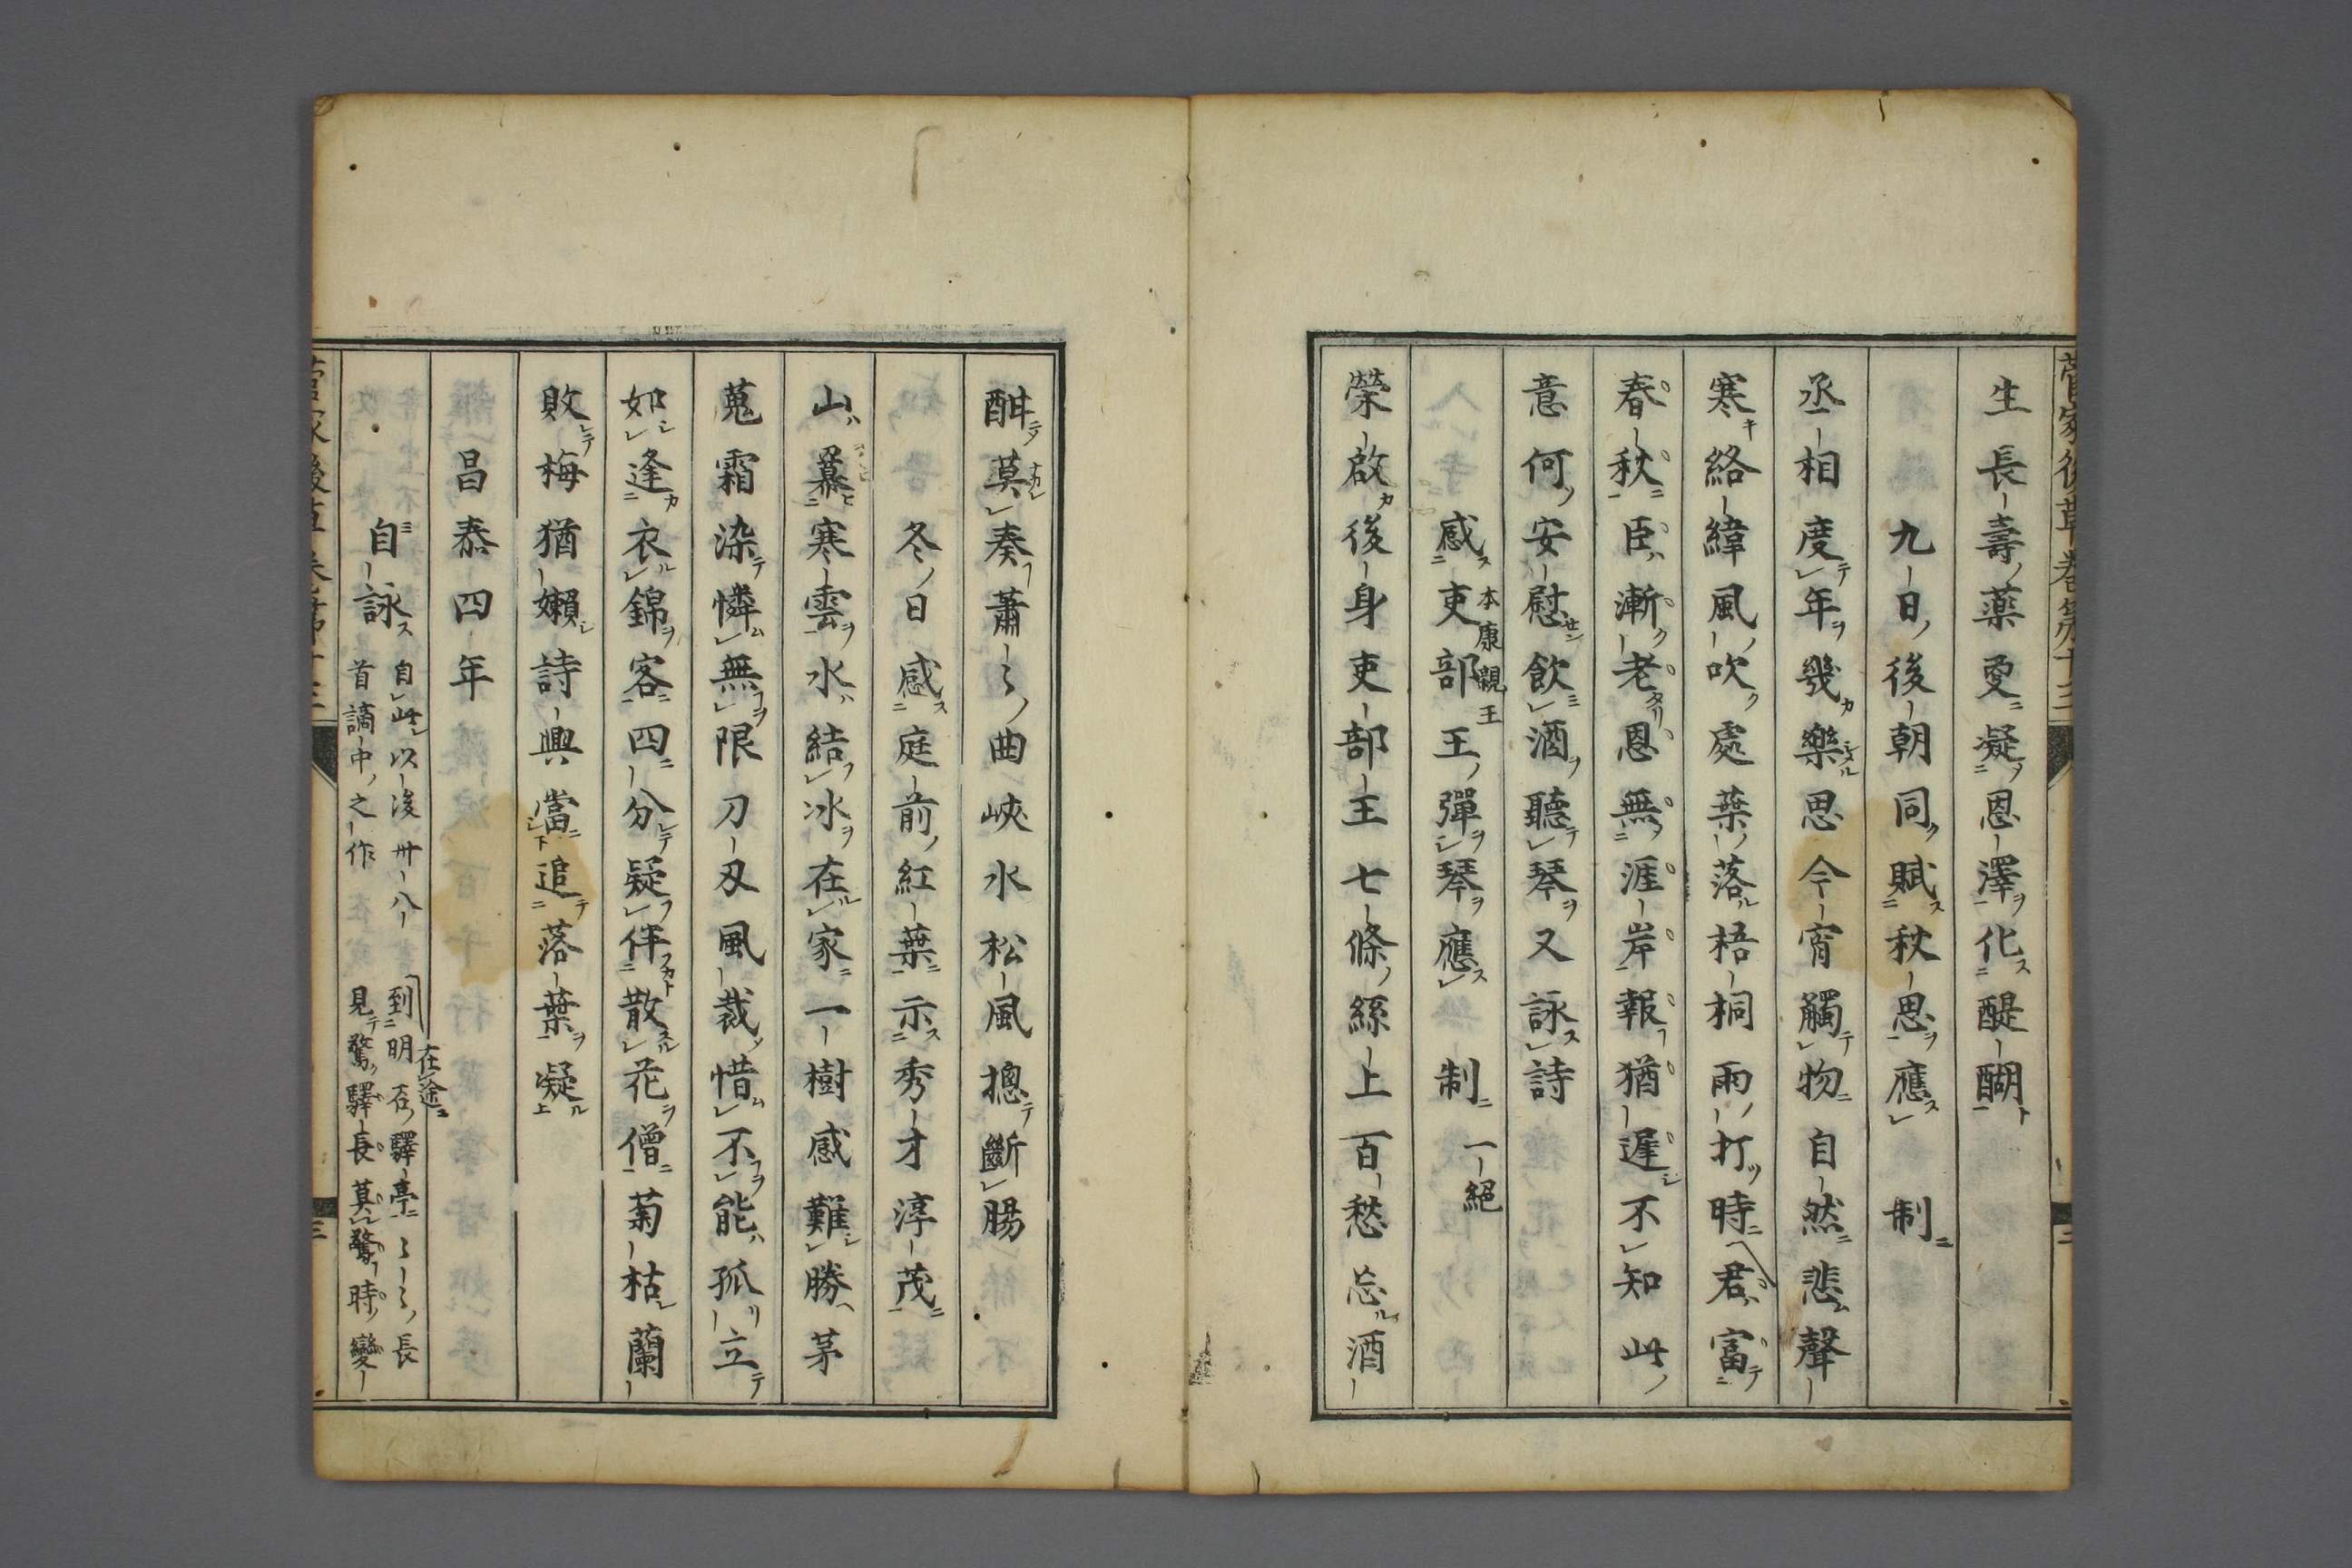 生長壽藥更凝恩澤化醍醐
九日後朝同賦秋思應制
丞相度年幾樂思今宵觸物自然悲聲
寒絡緯風吹處葉落梧桐雨打時君富
春秋臣漸老恩無涯岸報猶遲不知此
意何安慰飲酒聽琴又詠詩
感吏部王彈琴應制一絕
本康親王
榮啟後身吏部王七條絲上百愁忘酒
酣莫奏蕭々曲峽水松風摠斷腸
冬日感庭前紅葉示秀才淳茂
山慕寒雲水結冰在家一樹感難勝茅
蒐霜染憐無限刀刃風裁惜不能孤立
如逢衣錦客四分疑伴散花僧菊枯蘭
敗梅猶嬾詩興當追落葉凝
昌泰四年
自詠
自此以後卅八
首謫中之作
到明石驛亭々々長
在途
見驚驛長莫驚時變